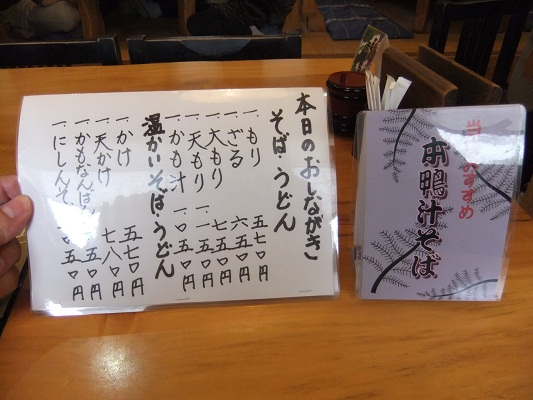 本日のおしながき
そば・うどん
一.もり 五七〇円
一.ざる 六五〇円
一.大もり 七五〇円
一.天もり 一.一五〇円
一.かも汁 一.〇五〇円
温かいそば・うどん
一.かけ 五七〇円
一.天かけ 七八〇円
一.かもなんばん 五〇円
一.にしんそ 〇五〇円
当 おすすめ
本鴨汁そば